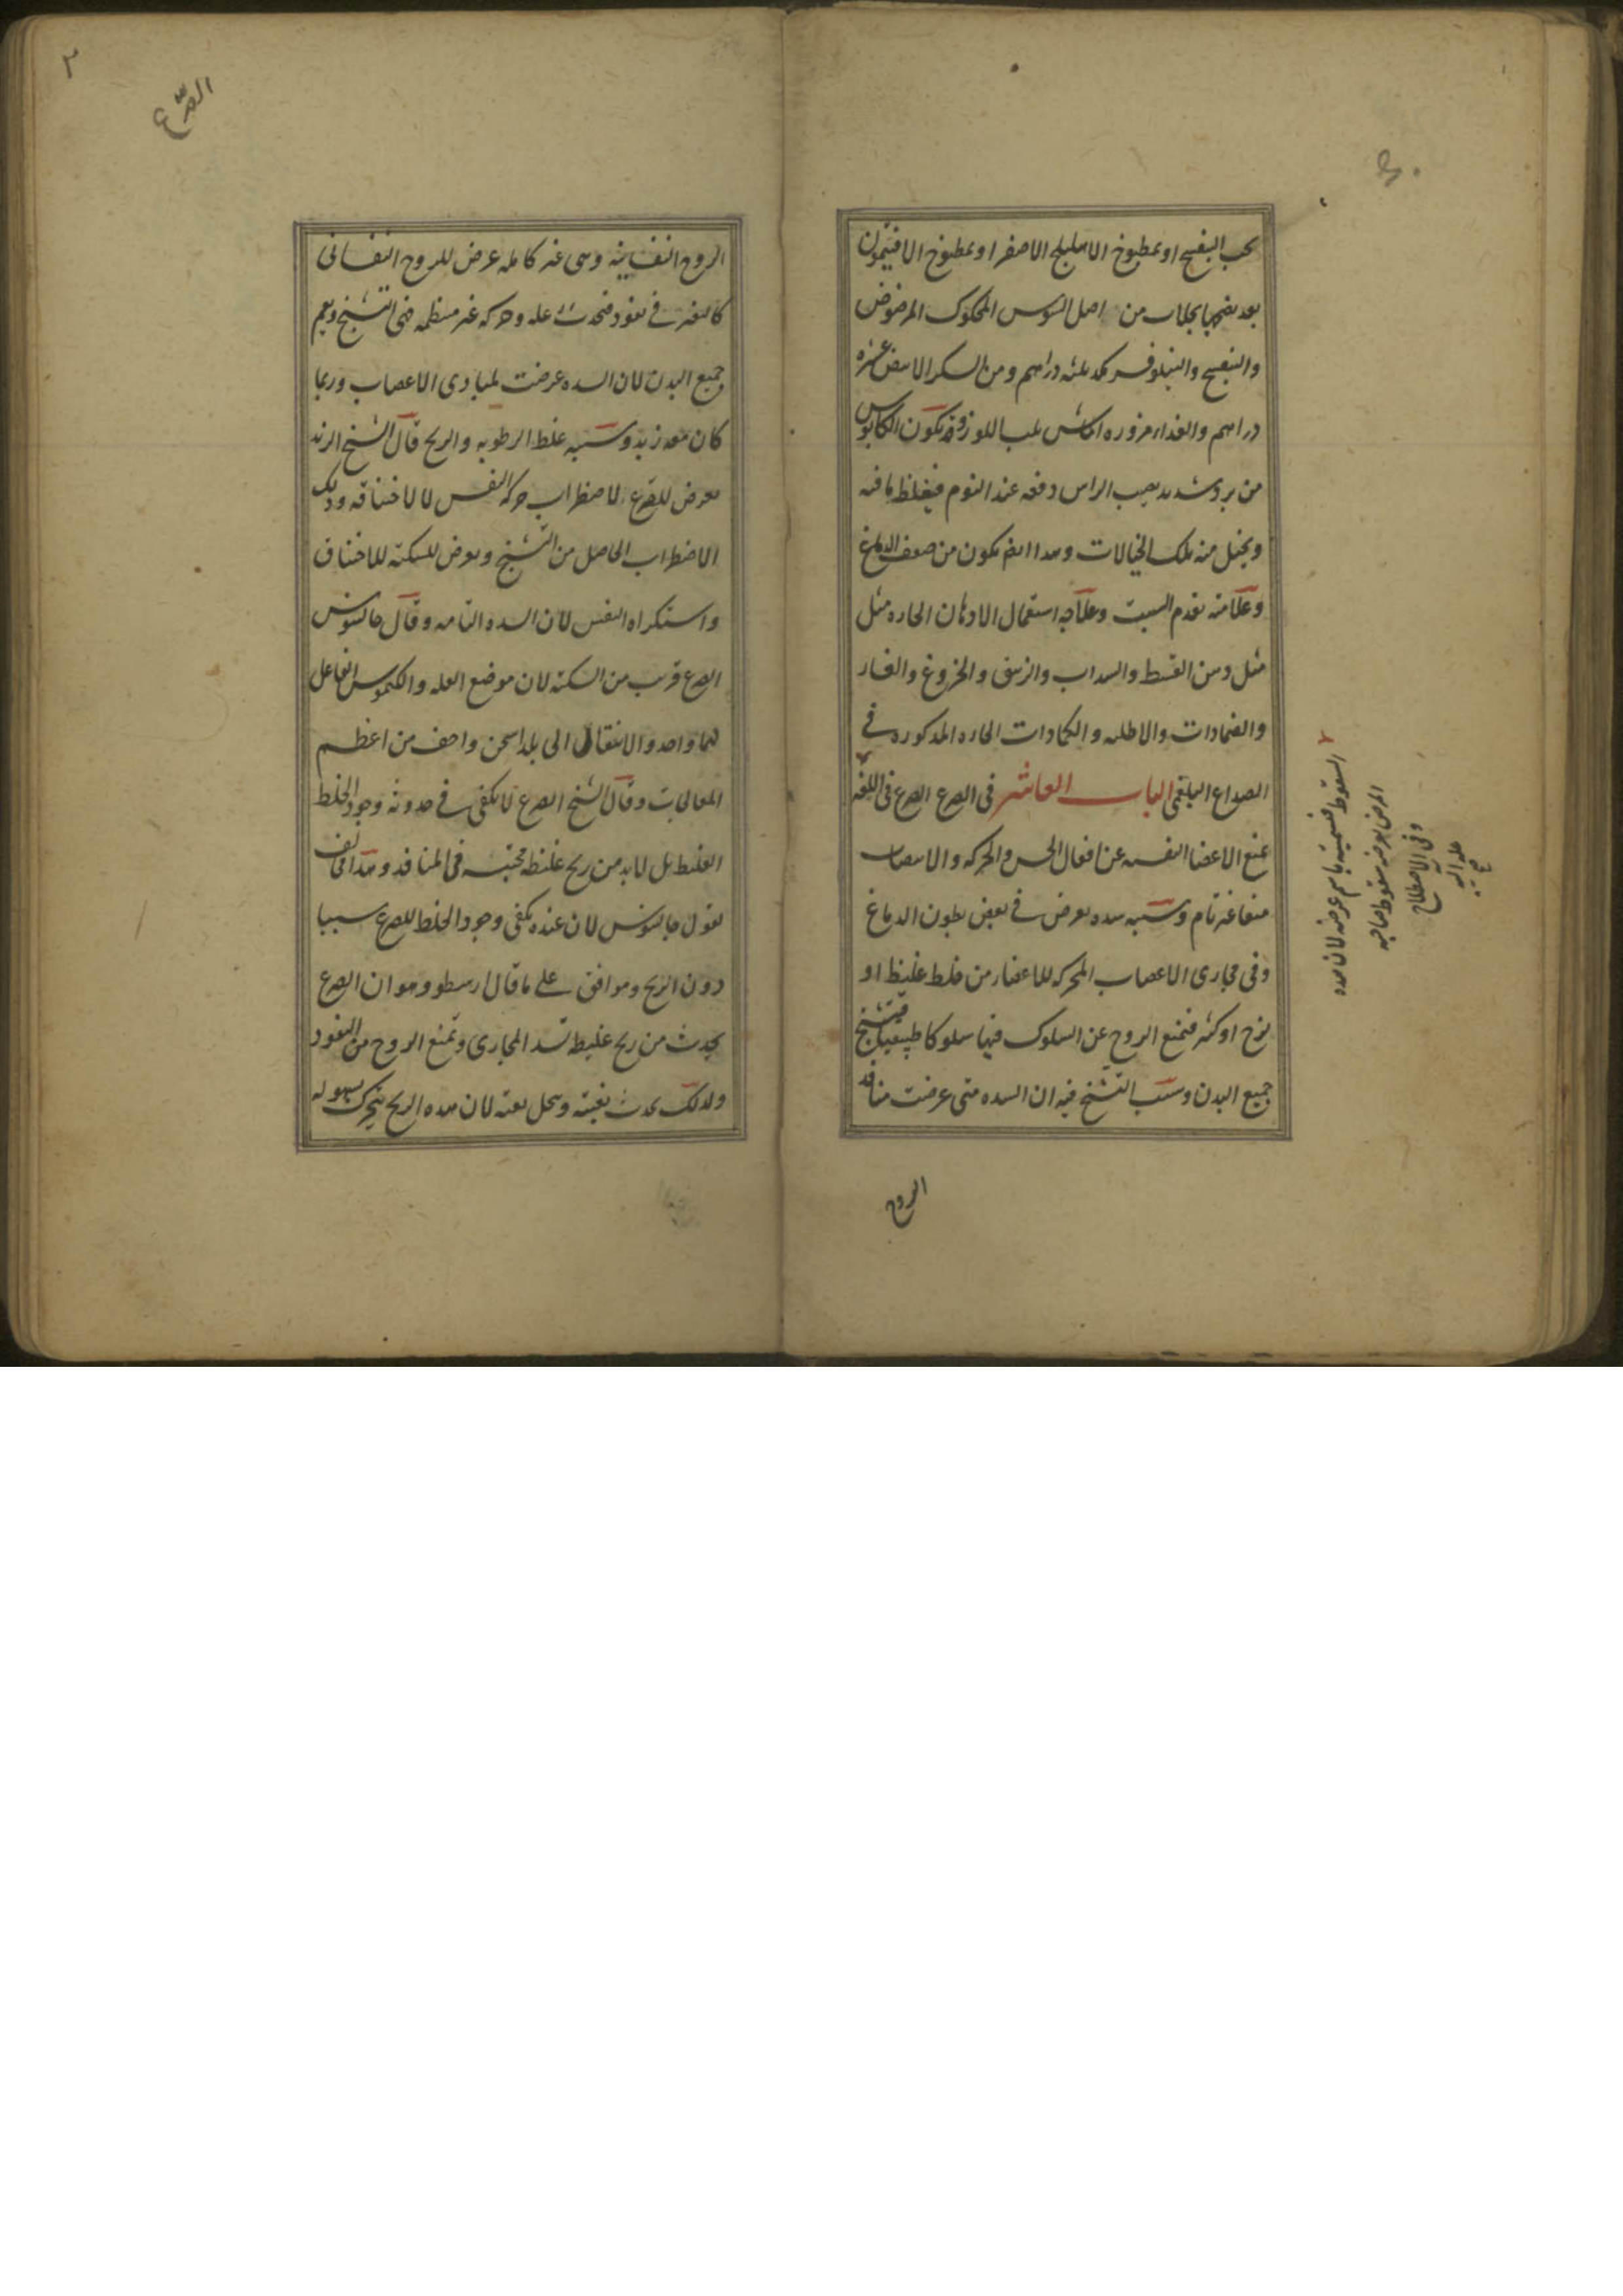 بحب البنفسج او بمطبوخ الاهليلج الاصفر او بمطبوخ الافتيمون
بعد نضجها بجلاب من اصل السوس المحكوك المرضوض
والبنفسج والنيلوفر مكد ثلثه دراهم ومن السكر الابيض عشره
دراهم والغذاء مزوره الماش بلب اللوز وقد يكون الكابوس
من برد شديد يصيب الراس دفعه عند النوم فيغلظ ما فيه
ويخيل منه تلك الخيالات وهذا ايضا يكون من ضعف الدماغ
وعلامته تقدم السبت وعلاجه استعمال الادهان الحاره مثل
مثل دهن القسط والسداب والزنبق والخروع والغار
والضمادات والاطليه والكمادات الحاره المذكوره في
الصداع البلغمي الباب العاشر في الصرع الصرع في اللغه
يمنع الاعضا النفسيه عن افعال الحس والحركه والانتصاب
منعا غير تام وسببه سده تعرض في بعض بطون الدماغ
وفي مجاري الاعصاب المحركه للاعضاء من خلط غليظ او
لزج او كثير فتمنع الروح عن السلوك فيها سلوكا طبيعيا فيتشنج
جميع البدن وسبب التشنج فيه ان السده متى عرضت منافذ
الروح
السقوط فسميته باسم عرضه لان هذه
المرض يعرضه سقوط صاحبه
وفي الاصطلاح
عله اليه
٢
الصرع
الروح النفسانيه وهي غير كامله عرض للروح النفساني
كالتعذر في نفوذ فتحدث عله وحركه غير منتظمه فهي التشنج ويعم
جميع البدن لان السده عرضت لمبادي الاعصاب وربما
كان معه زبد وسببه غلظ الرطوبه والريح قال الشيخ الزبد
يعرض للصرع لاضطراب حركه النفس لا لاختناقه وذلك
الاضطراب الحاصل من التشنج ويعرض للسكته للاختناق
واستكراه النفس لان السده التامه وقال جالينوس
الصرع قريب من السكته لان موضع العله والكيموس الفاعل
لهما واحد والانتقال الى بلد اسخن واجف من اعظم
المعالجات وقال الشيخ الصرع لا يكفي في حدوثه وجود الخلط
الغليظ بل لا بد من ريح غليظه محتبسه في المنافذ وهذا مخالف
لقول جالينوس لان عنده يكفي وجود الخلط للصرع سببا
دون الريح وموافق على ما قال ارسطو وهو ان الصرع
يحدث من ريح غليظه تسد المجاري وتمنع الروح من النفوذ
ولذلك يحدث بغته وينحل بغته لان هذه الريح يتحرك بسهوله